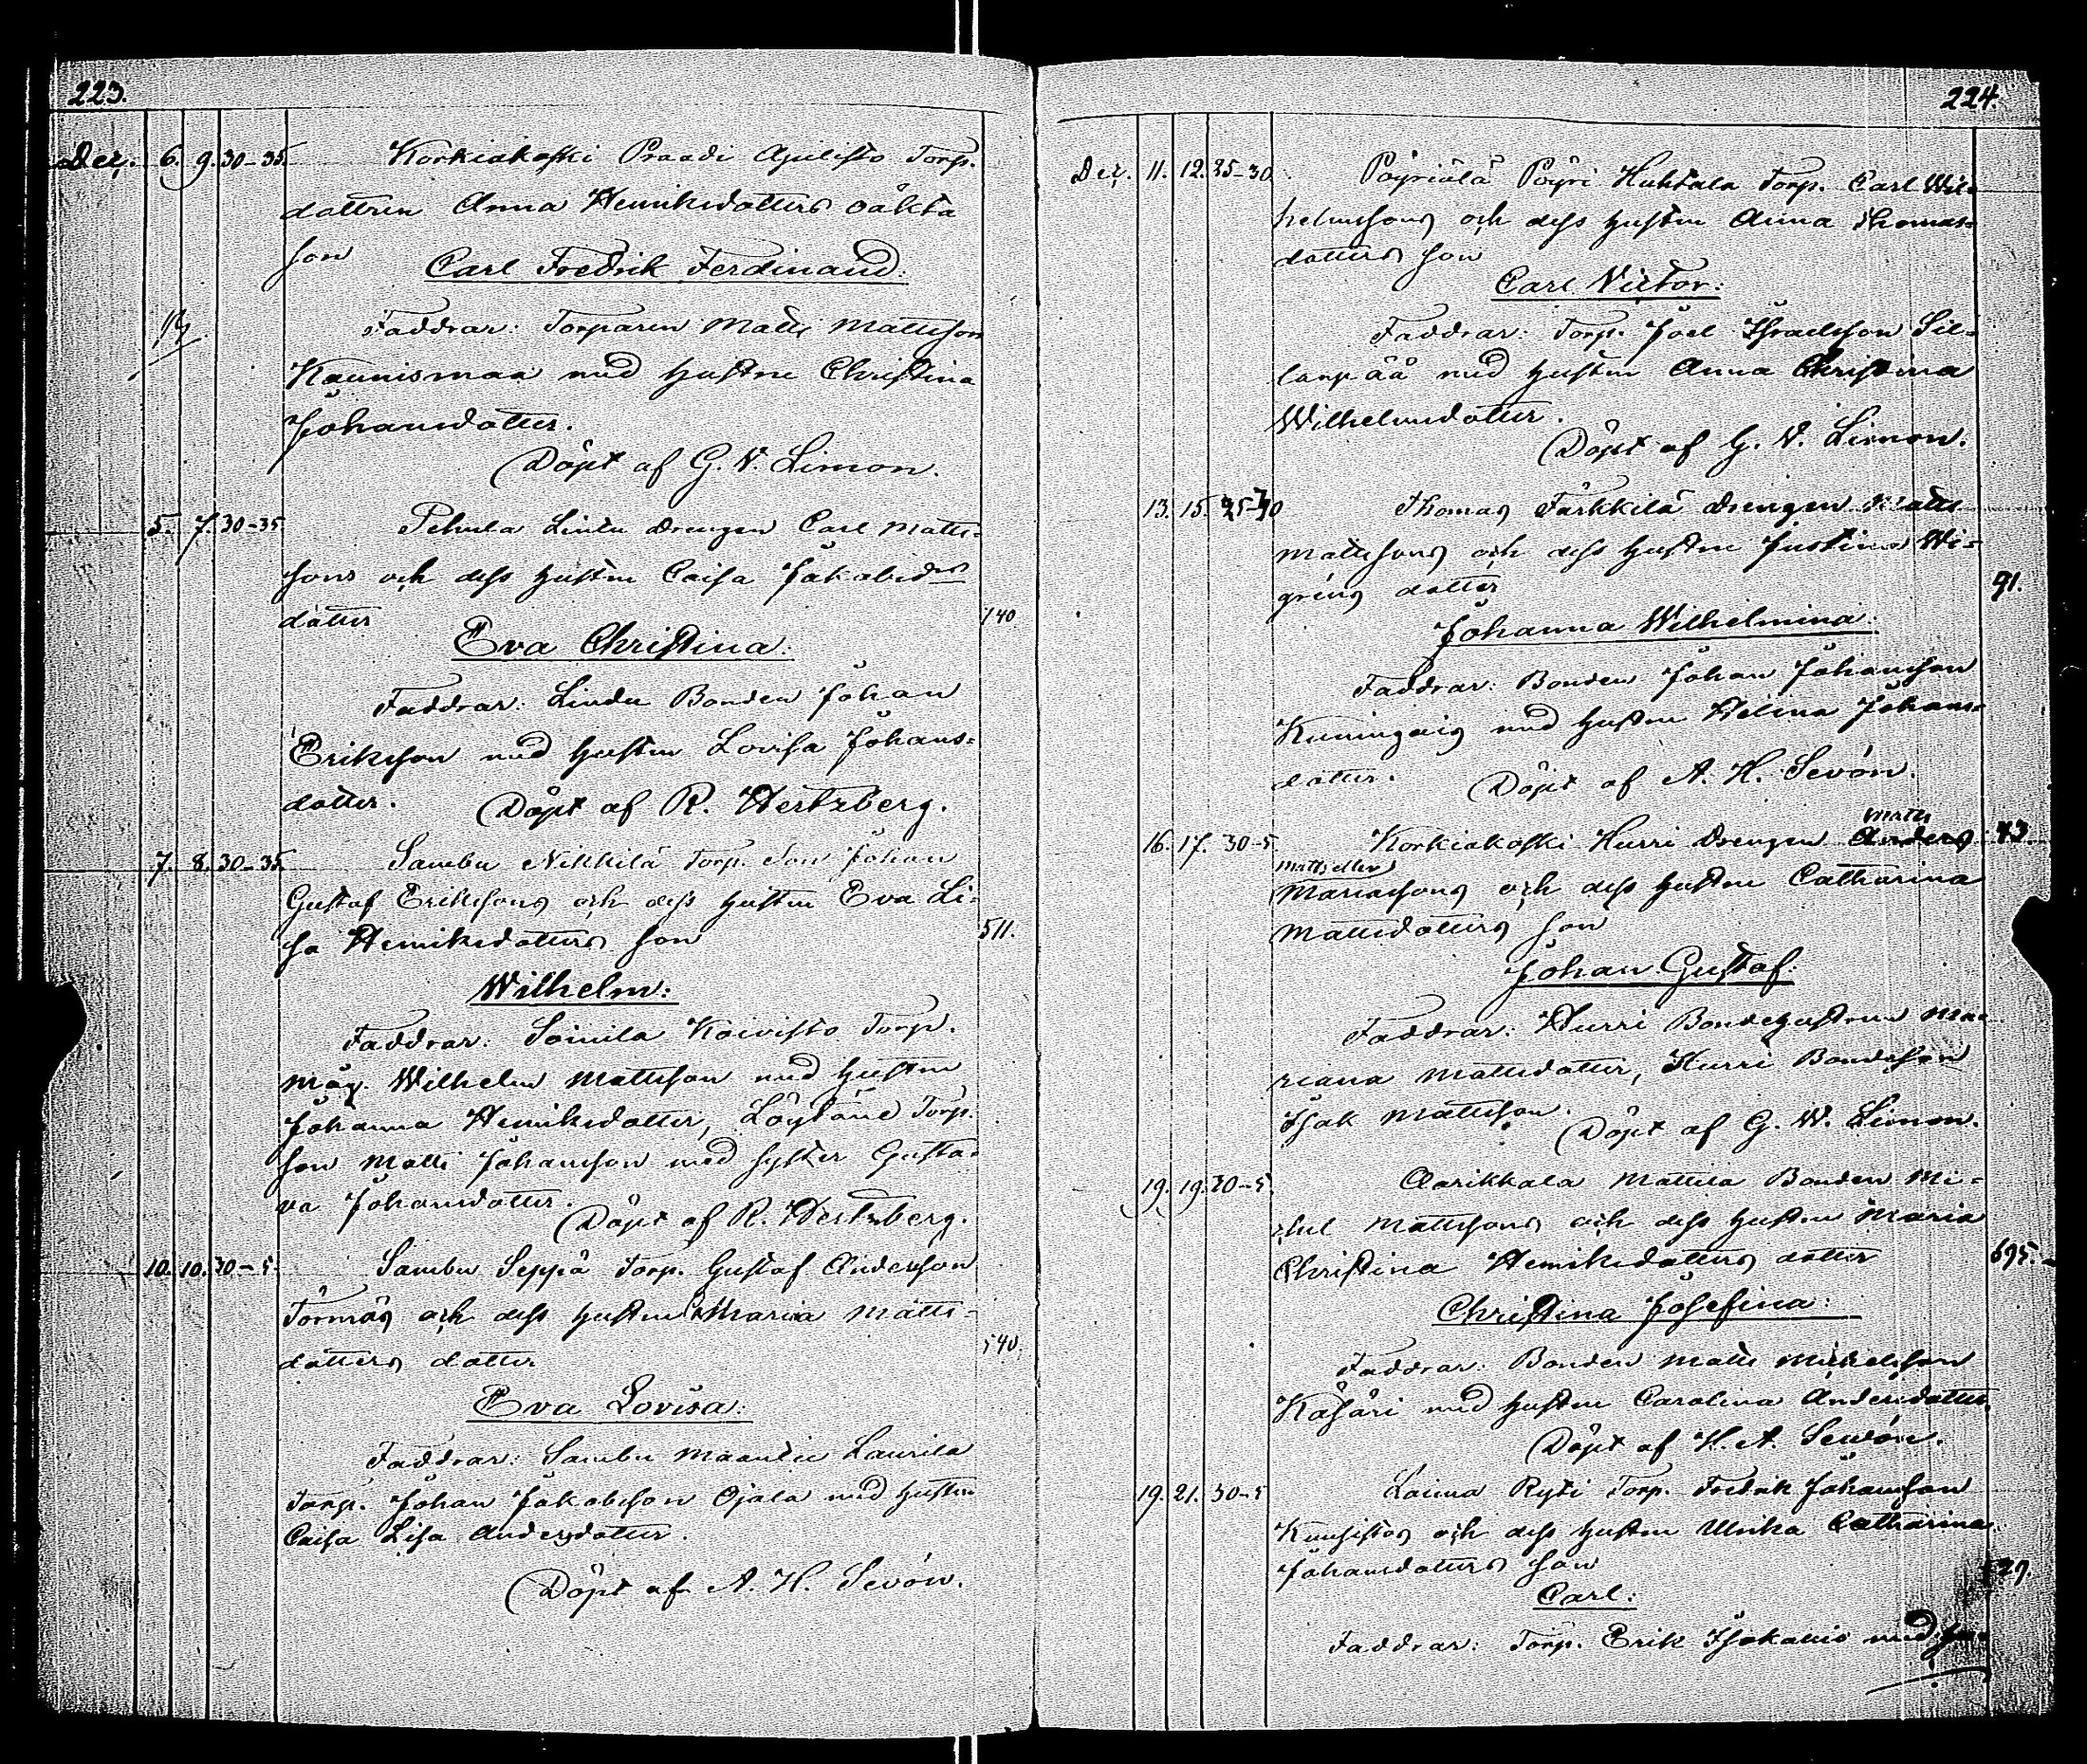 223.
Dec. 6. 9. 30-35. Korkiakoski Praadi Torp.
dottren Anna Henriksdotters oäkta
son
Carl Fredrik Ferdinand:
Faddrar: Torparen Matti Mattsson
Kaunismaa med hustru Christina
Johansdotter.
Döpt af G. W. Limon.
5. 7. 30-35 Pehula Lindu Drengen Carl Matts-
sons och dess hustru Caisa Jakobsd
dotter
140
Eva Christina:
Faddrar: Lindu Bonden Johan
Eriksson med hustru Lovisa Johans=
dotter. Döpt af R. Hertzberg.
7. 8. 30-35. Sambu Nikkilä Torp. Son Johan
Gustaf Erikssons och dess hustru Eva Li-
sa Henriksdotters son
511.
Wilhelm:
Faddrar: Soinila Koivisto Torp.
måg. Wilhelm Mattsson med hustru
Johanna Henriksdotter, Löytäne Torp.
son Matti Johansson med syster Gusta-
va Johansdotter.
Döpt af R. Hertzberg.
10. 10. 30-5. Sambu Seppä Torp. Gustaf Andersson
Törmäs och dess hustru Maria Matts-
dotters dotter
540.
Eva Lovisa:
Faddrar: Sambu Maantie Laurila
Torp. Johan Jakobsson Ojala med hustru
Caisa Lisa Andersdotter.
Döpt af A. H. Sevón.
224.
Dec. 11. 12. 25-30 Pöyriälä Pöyri Huhtala Torp. Carl Wil-
helmssons och dess hustru Anna Thomas=
dotters son
Carl Victor:
Faddrar: Torp. Joel Israelsson Sil-
lanpää med hustru Anna Christina
Wilhelmsdotter.
Döpt af G. W. Limon.
13. 15. 25-30 Thomas Färkkilä Drengen Matts
Mattssons och dess hustru Justina Wi-
grens dotter
91.
Johanna Wilhelmina:
Faddrar: Bonden Johan Johansson
Kuningais med hustru Helena Johans=
dotter.
Döpt af A. H. Sevón.
16. 17. 30-5 Korkiakoski Hurri Drengen Anders Matts 43.
Matts eller
Mariassons och dess hustru Catharina
Mattsdotters son
Johan Gustaf:
Faddrar: Hurri Bondehustrun Ma-
riana Mattsdotter, Hurri Bondeson
Isak Mattsson.
Döpt af G. W. Limon.
19. 19. 30-5. Aarikkala Mattila Bonden Mi-
chel Mattssons och dess hustru Maria
Christina Henriksdotters dotter
695.
Christina Josefina:
Faddrar: Bonden Matts Michelsson
Käsäri med hustru Carolina Andersdotter.
Döpt af H. A. Sewón.
19. 21. 30-5 Loima Ryti Torp. Fredrik Johansson
Kuusistos och dess hustru Ulrika Catharina
Johansdotters son
29.
Carl:
Faddrar: Torp. Erik Isokallio med